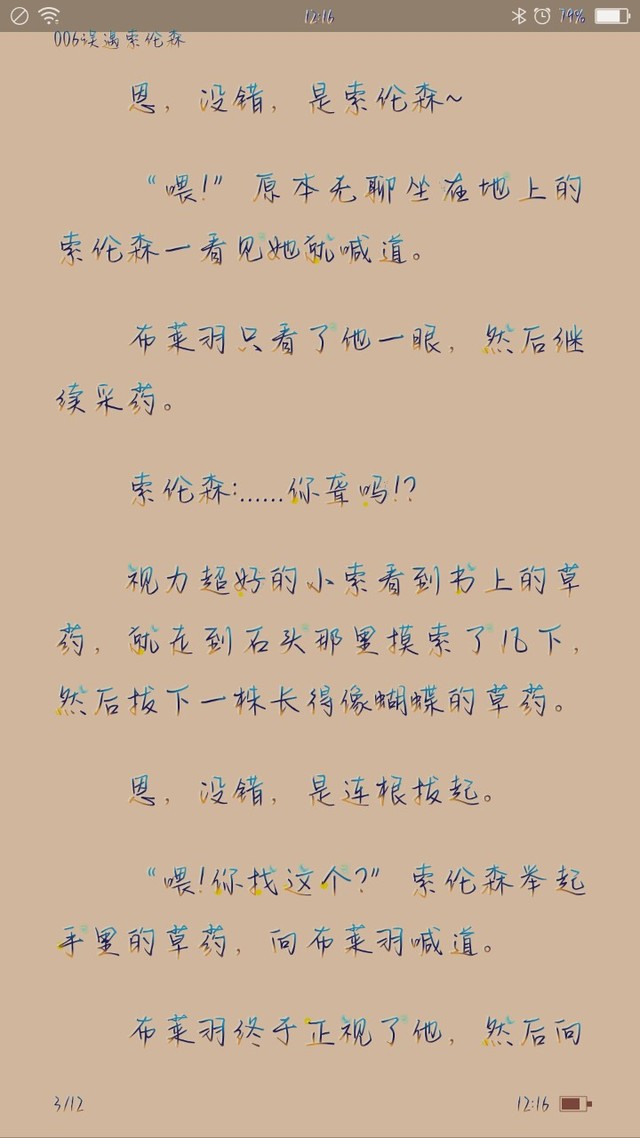 12:16
79%
006误遇索伦森
恩，没错，是索伦森~
“喂!”原本无聊坐在地上的
索伦森一看见她就喊道。
布莱羽只看了他一眼，然后继
续采药。
索伦森:......你聋吗!?
视力超好的小索看到书上的草
药，就走到石头那里摸索了几下，
然后拔下一株长得像蝴蝶的草药。
恩，没错，是连根拔起。
“喂!你找这个?”索伦森举起
手里的草药，向布莱羽喊道。
布莱羽终于正视了他，然后向
3/12
12:16